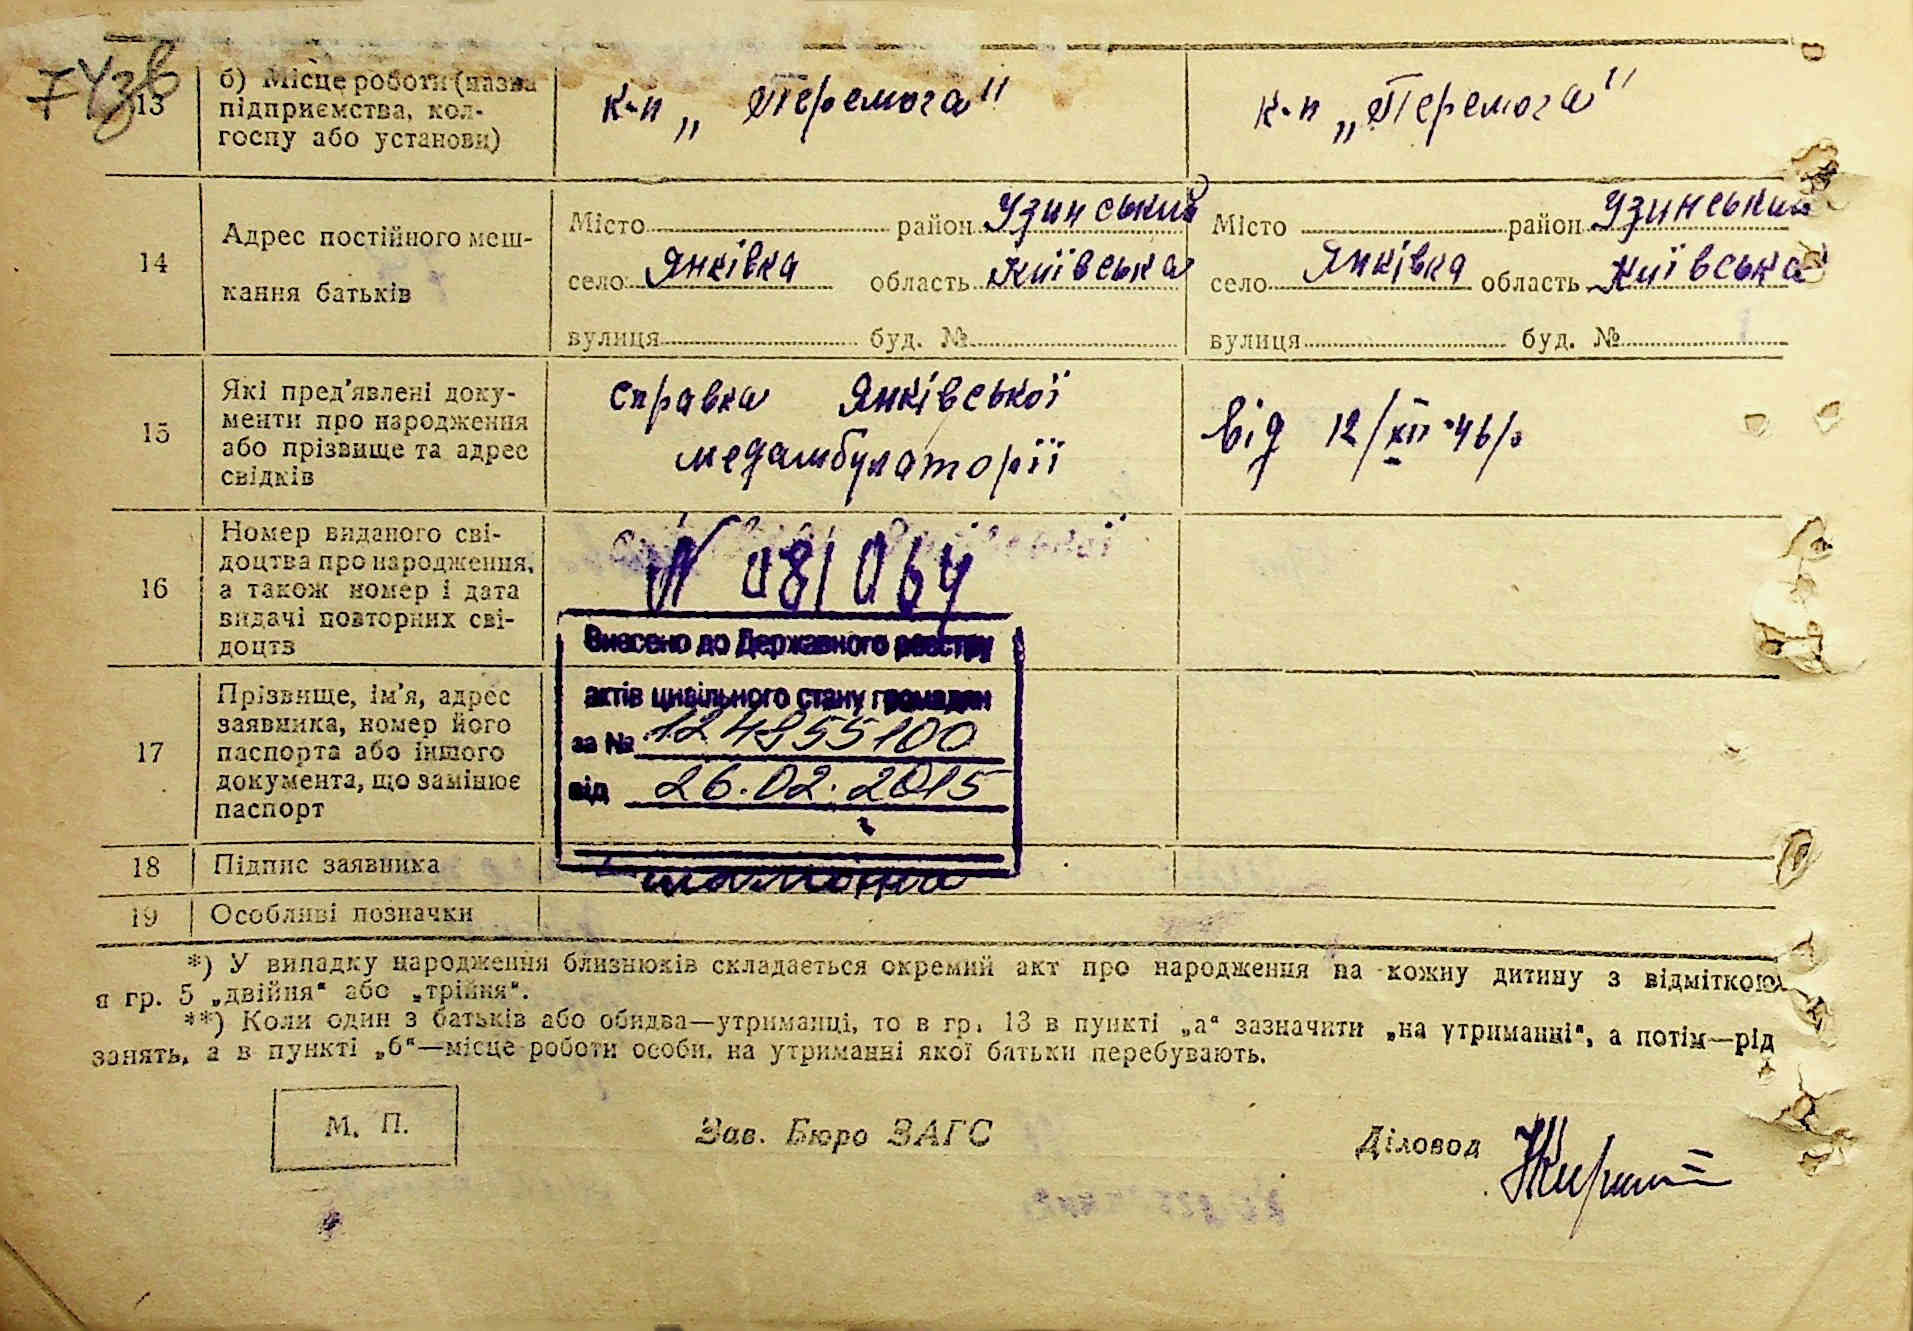 74зв
13 б) Місце роботи (назва підприємства, кол-госпу або установи)
к-п „Перемога"
к-п „Перемога"
14 Адрес постійного меш-
кання батьків
Місто район Узинський
село Янківка область Київська
вулиця буд. №
Місто район Узинський
село Янківка область Київська
вулиця буд. №
15 Які пред'явлені доку-
менти про народження
або прізвище та адрес
свідків
справка Янківської
медамбулаторії
від 12/XII-46р.
16 Номер виданого сві-
доцтва про народження,
а також номер і дата
видачі повторних сві-
доцтв
N 081064
Внесено до Державного реєстру
актів цивільного стану громадян
за № 124855100
від 26.02.2015
17 Прізвище, ім'я, адрес
заявника, номер його
паспорта або іншого
документа, що замінює
паспорт
18 Підпис заявника
19 Особливі позначки
*) У випадку народження близнюків складається окремий акт про народження на кожну дитину з відміткою
в гр. 5 „двійня" або „трійня".
**) Коли один з батьків або обидва—утриманці, то в гр. 13 в пункті „а" зазначити „на утриманні", а потім—рід
занять, а в пункті „б"—місце роботи особи, на утриманні якої батьки перебувають.
М. П.
Зав. Бюро ЗАГС
Діловод